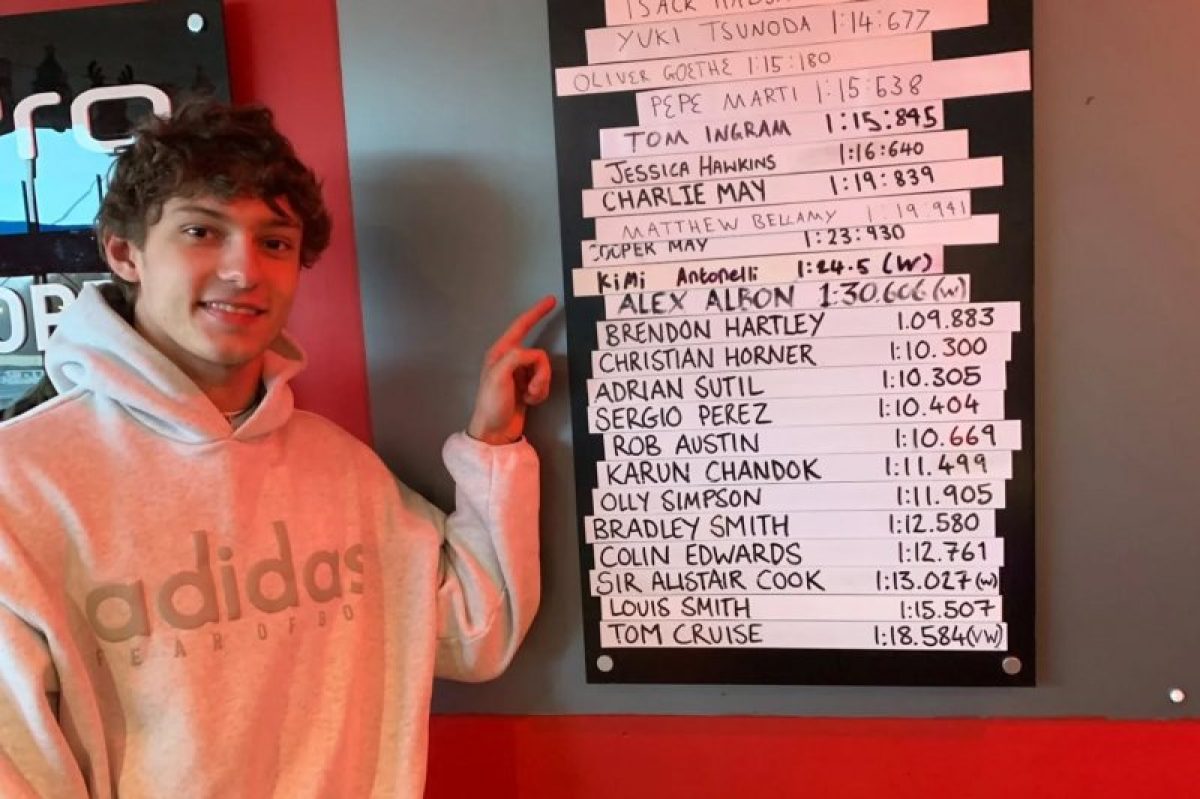 ro
OB
adidas
FEAR OF GO
YUKI TSUNODA 1:14:677
OLIVER GOETHE 1:15:180
PEPE MARTI 1:15:638
TOM INGRAM 1:15:845
JESSICA HAWKINS 1:16:640
CHARLIE MAY 1:19:839
MATTHEW BELLAMY 1:19:941
COOPER MAY 1:23:930
KiMi Antonelli 1:24.5 (W)
ALEX ALBON 1:30.606 (W)
BRENDON HARTLEY 1.09.883
CHRISTIAN HORNER 1:10.300
ADRIAN SUTIL 1:10.305
SERGIO PEREZ 1:10.404
ROB AUSTIN 1:10.669
KARUN CHANDOK 1:11.499
OLLY SIMPSON 1:11.905
BRADLEY SMITH 1:12.580
COLIN EDWARDS 1:12.761
SIR ALISTAIR COOK 1:13.027(W)
LOUIS SMITH 1:15.507
TOM CRUISE 1:18.584(VW)